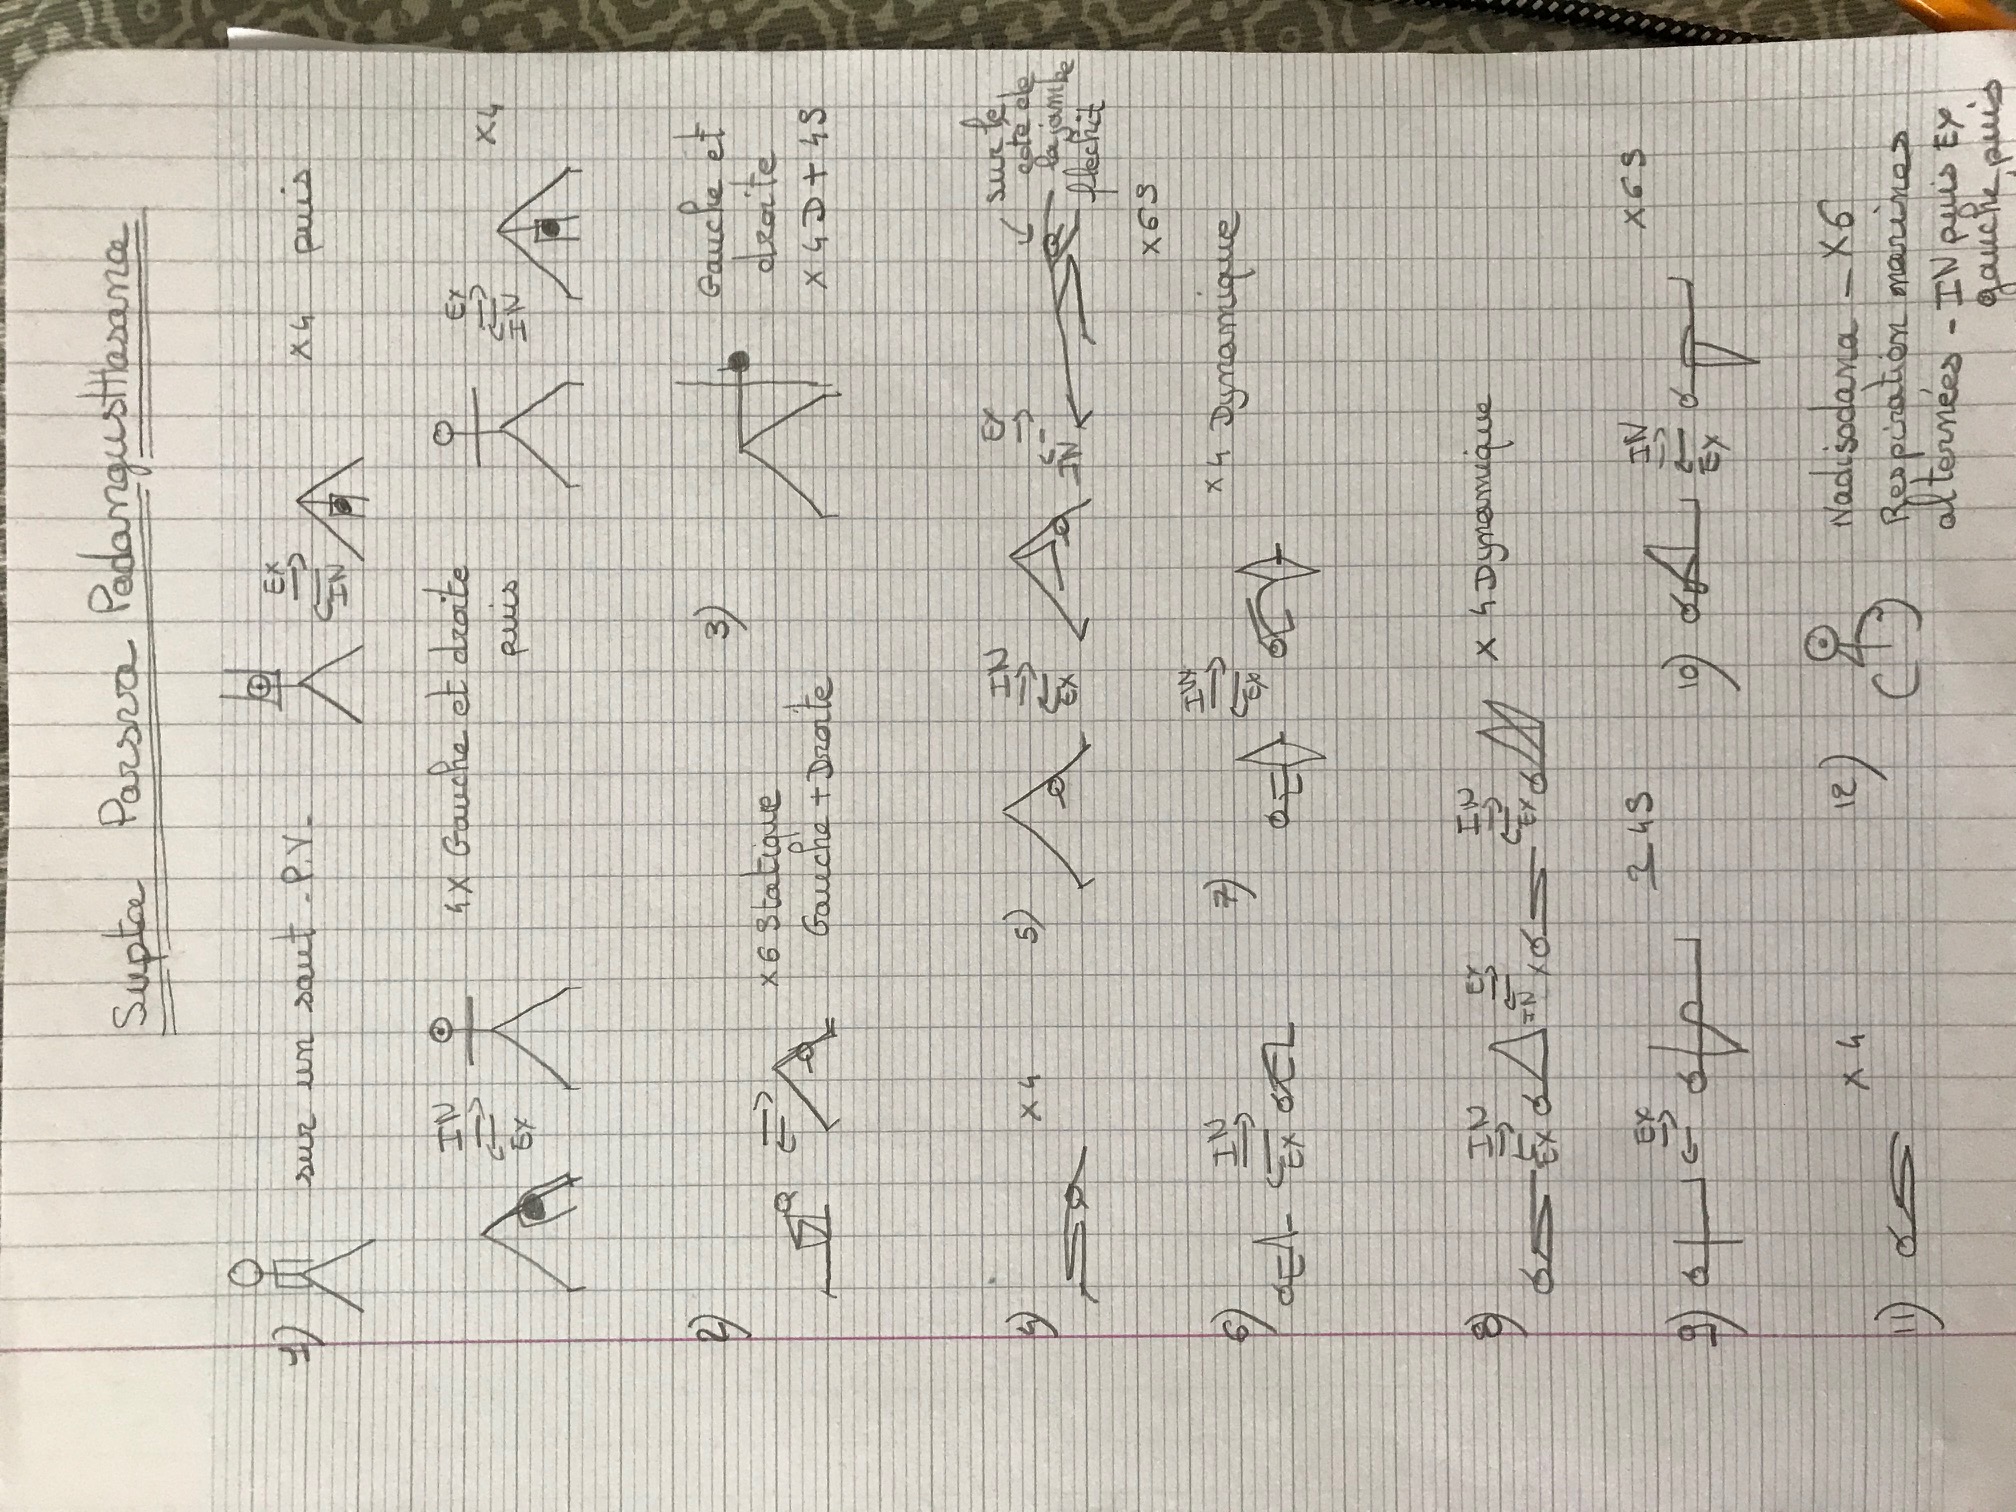 Supta Parsva Padangusthasana
1) sur un saut. P.V. Ex IN x4 puis
IN Ex 4x Gauche et droite puis Ex IN x4
2) x6 Statique Gauche + Droite
3) Gauche et droite x 4D + 4S
4) x4
5) IN Ex Ex IN sur le côté de la jambe fléchit
x6S
6) IN Ex
7) IN Ex x4 Dynamique
8) IN Ex Ex IN x IN Ex x 4 Dynamique
9) Ex 24S
10) IN Ex x6S
11) x4
12) Nadisodana - x6
Respiration narines
alternées - IN puis Ex
gauche, puis